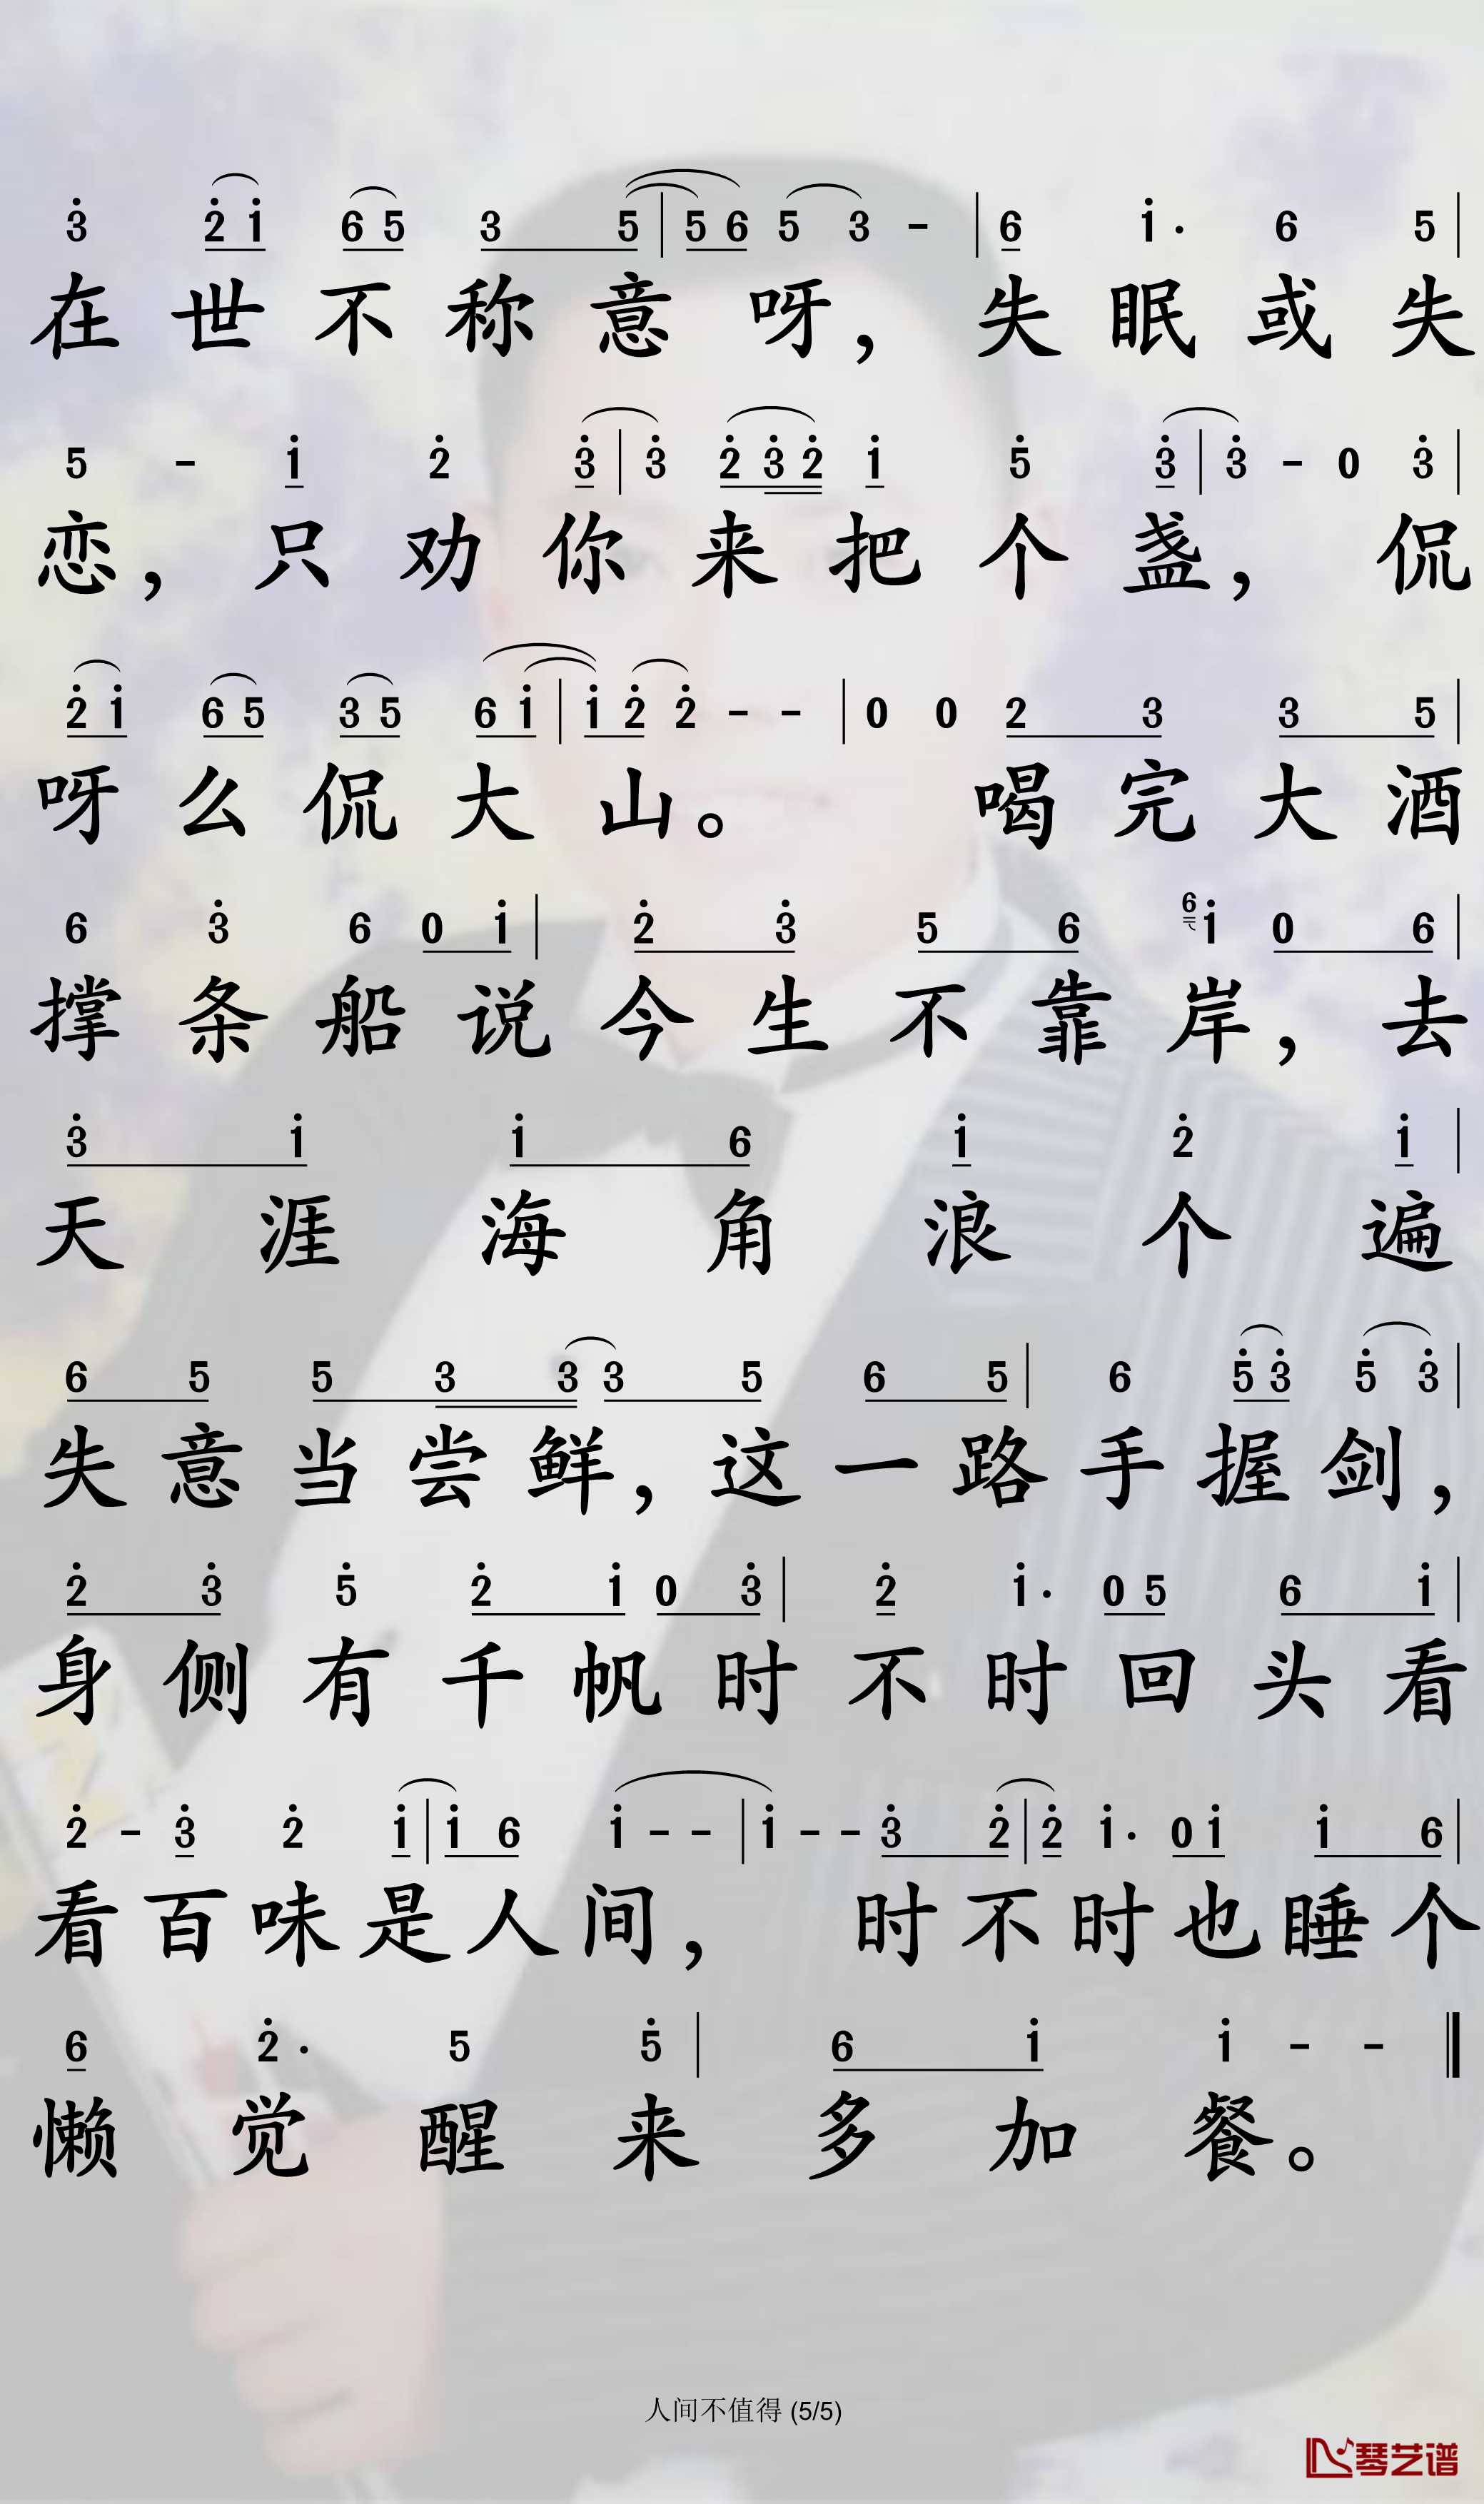 3 2 1 6 5 3 5 | 5 6 5 3 - | 6 1 · 6 5 |
在世不称意呀，失眠或失
5 - 1 2 3 | 3 2 3 2 1 5 3 | 3 - 0 3 |
恋，只劝你来把个盏，侃
2 1 6 5 3 5 6 1 | 1 2 2 - - | 0 0 2 3 3 5 |
呀么侃大山。喝完大酒
6 3 6 0 1 | 2 3 5 6 6 1 0 6 |
撑条船说今生不靠岸，去
3 1 1 6 1 2 1 |
天涯海角浪个遍
6 5 5 3 3 3 5 6 5 | 6 5 3 5 3 |
失意当尝鲜，这一路手握剑，
2 3 5 2 1 0 3 | 2 1 · 0 5 6 1 |
身侧有千帆时不时回头看
2 - 3 2 1 | 1 6 1 - - | 1 - - 3 2 | 2 1 · 0 1 1 6 |
看百味是人间，时不时也睡个
6 2 · 5 5 | 6 1 1 - - ‖
懒觉醒来多加餐。
人间不值得 (5/5)
琴艺谱